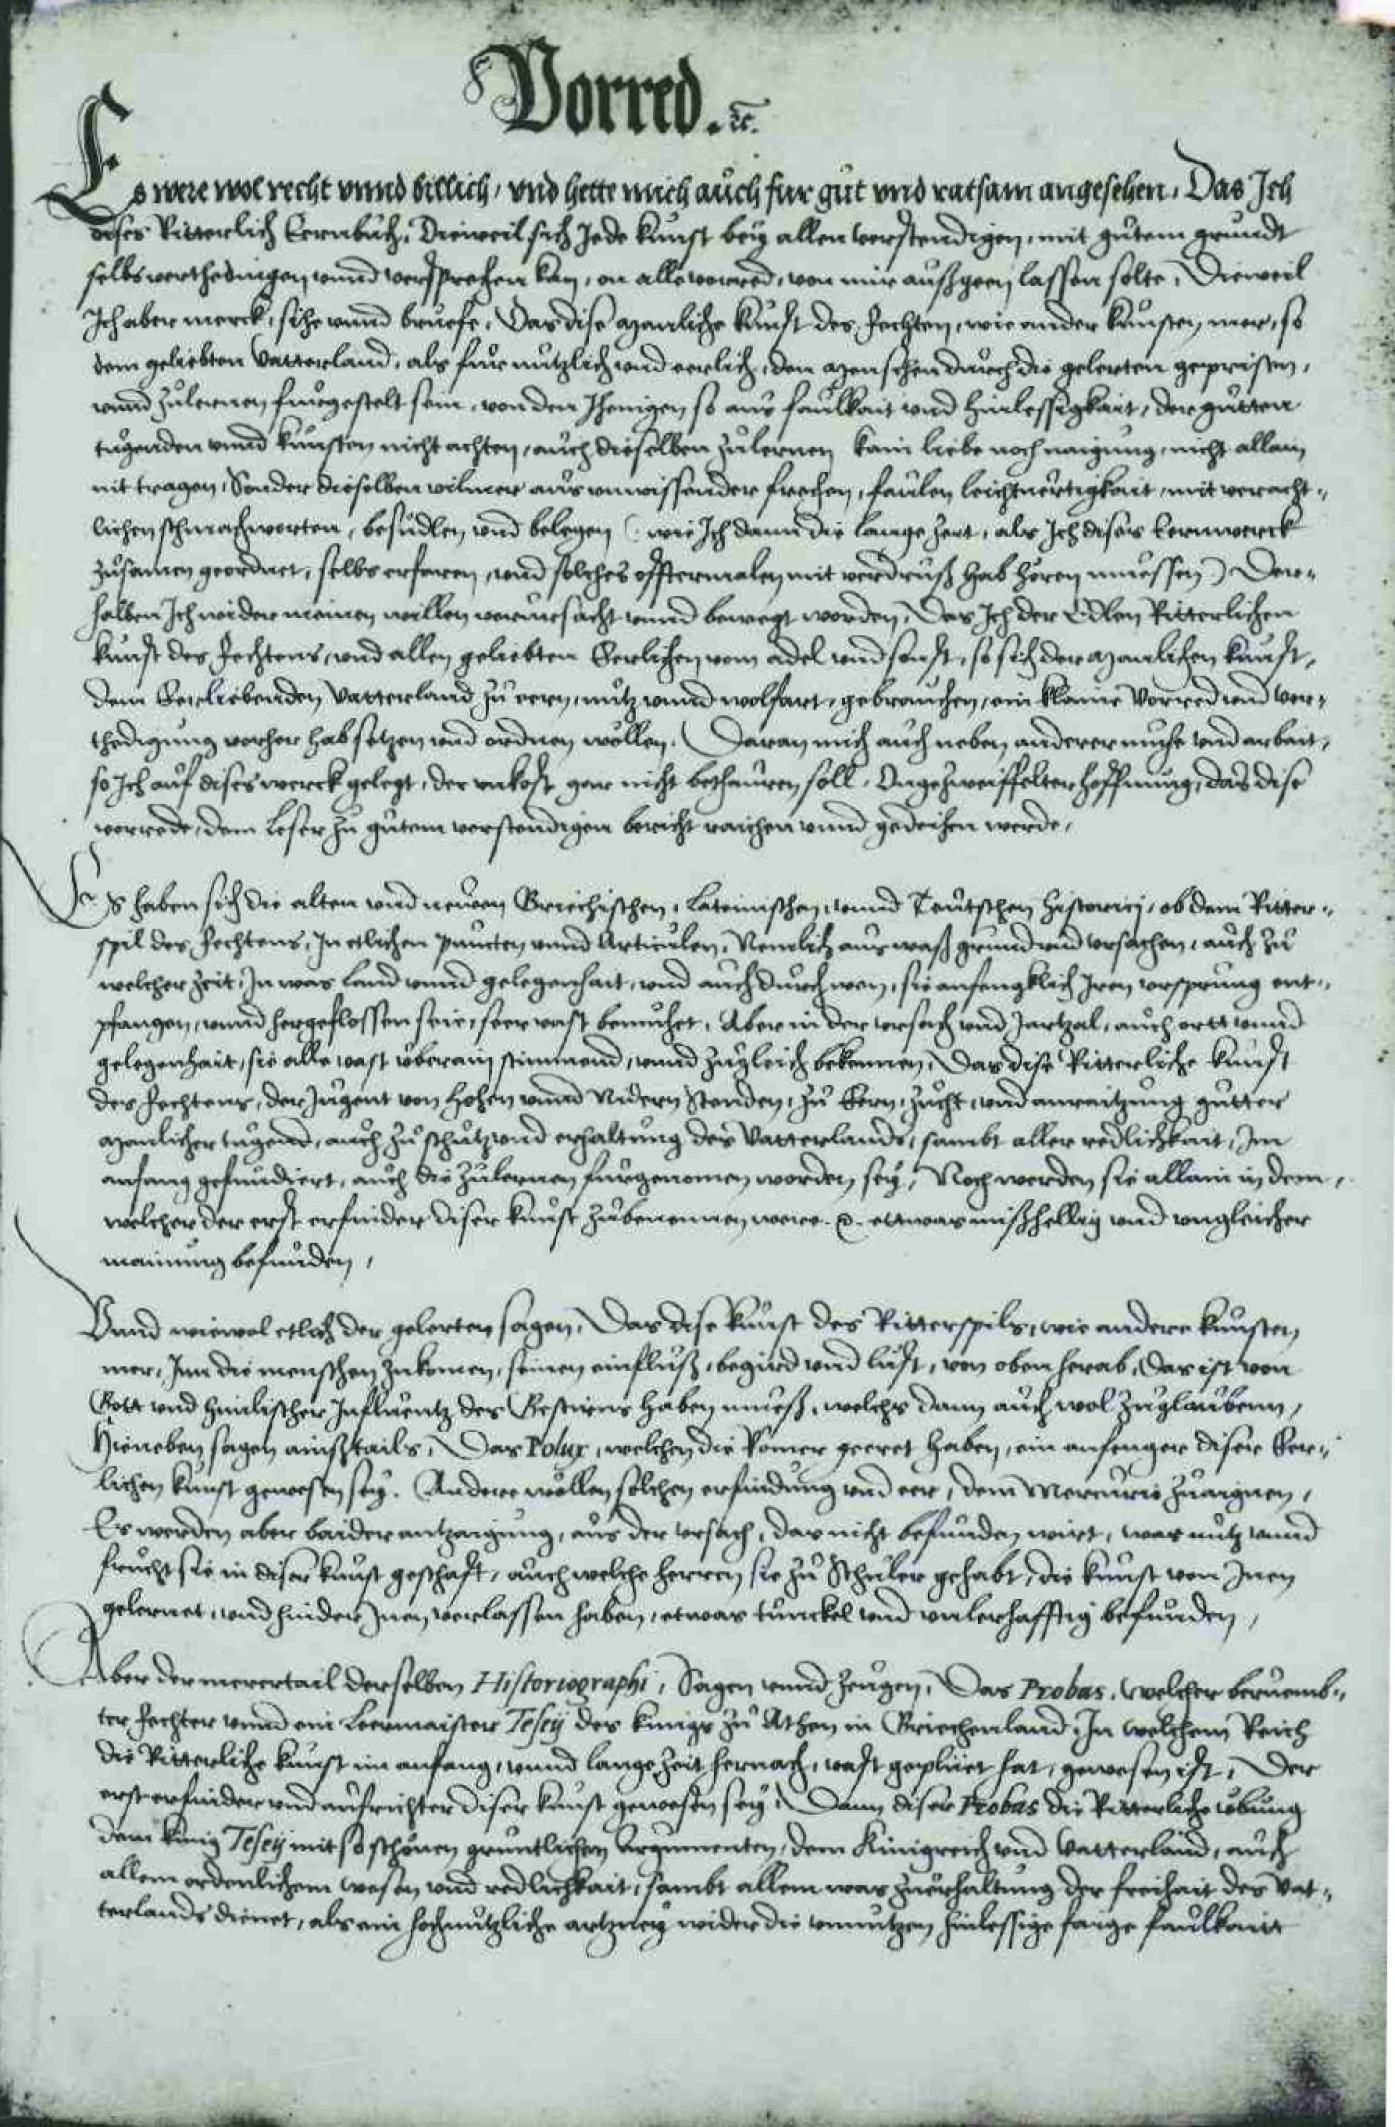 Vorred. ꝛc.
Es were wol recht vnnd billich, vnd hette mich auch fur gůt vnd ratsam angesehen, Das Ich
dises Ritterlich Eernbůch, Dieweil sich Jede kunst beÿ allen verstendigen, mit gůtem grundt
selbs verthedingen vnnd versprechen kan, on alle vorred, von mir außgeen lassen solte, Dieweil
Ich aber merck, sihe vnnd bruefe, Das dise manliche kunst des Fechten, wie ander kunsten mer, so
dem geliebten Vatterland, als fur nutzlich vnd eerlich, den menschen durch die gelerten geprisen,
vnnd zůlernen furgestelt sein, von den Ihenigen so aus faulkait vnd hinlessigkait, der gůtten
tugenden vnnd kunsten nicht achten, auch dieselben zůlernen kain liebe noch naigung, nicht allain
nit tragen, Sonder dieselben vilmer aus vnwissender frechen, faulen leichtuertigkait, mit veracht-
lichen schmachworten, besudlen vnd belegen (wie Ich dann die lange zeit, als Ich dises Eernwerck
zůsamen geordnet, selbs erfaren, vnd solches offtermalen mit verdruß hab hören muessen) Der-
halben Ich wider meinen willen verursacht vnnd bewegt worden, Das Ich der Edlen Ritterlichen
kunst des Fechtens, vnd allen geliebten Eerlichen vom adel vnd sonst, so sich der manlichen kunst,
dem Eerliebenden Vatterland zů eern, nutz vnnd wolfart, gebrauchen, ein klaine Vorred vnd ver-
thedigung vorher hab setzen vnd ordnen wöllen. Daran mich auch neben anderer muhe vnd arbait,
so Ich auf dises werck gelegt, der vnkost gar nicht bethauren soll, Vngezweiffelter hoffnung, das dise
vorrede, dem Leser zů gůtem verstendigen bericht raichen vnnd gedeihen werde,
Es haben sich die alten vnd neuen Griechischen, Lateinischen, vnnd Teutschen Historici, ob dem Ritter-
spil des Fechtens, In etlichen puncten vnnd Articulen, Nemlich aus waß grund vnd vrsachen, auch zů
welcher zeit, In was land vnnd gelegenhait, vnd auch durch wen, sie anfengklich Iren vrsprung ent-
pfangen, vnnd hergeflossen seie, seer vast bemuhet, Aber in der vrsach vnd Jartzal, auch ortt vnnd
gelegenhait, sie alle vast vberain stimmend, vnnd zůgleich bekennen, Das dise Ritterliche kunst
des Fechtens, der Jugent von hohen vnnd Nidern Stenden, zů Eern, zucht, vnd anraitzung gůtter
manlicher tugend, auch zů schutz vnd erhaltung des Vatterlands, sambt aller redlichkait, Im
anfang gefundiert, auch die zůlernen furgenomen worden seÿ, Noch werden sie allain in dem,
welcher der erst erfinder diser kunst zůbenennen were. ꝛc. ettwas mißhellig vnd vngleicher
mainung befunden,
Vnnd wiewol etlich der gelerten sagen, Das dise kunst des Ritterspils, wie andere kunsten
mer, Inn die menschen zukomen, seinen einfluß, begird vnd lust, von oben herab, das ist von
Gott vnd himlischer Influentz des Gestirns haben mueß, welchs dann auch wol zuglauben,
Hieneben sagen ainßtails, Das Polux, welchen die Römer geeret haben, ein anfenger diser Eer-
lichen kunst gewesen seÿ. Andere wöllen solchen erfindung vnd eer, dem Mercurio zuaignen,
Es werden aber baider antzaigung, aus der vrsach, das nicht befunden wirt, was nutz vnnd
frucht sie in diser kunst geschafft, auch welche herren sie zů Schuler gehabt, die kunst von Inen
gelernet, vnd hinder Inen verlassen haben, etwas tunckel vnd vnlerhafftig befunden,
Aber der merertail derselben Historiographi, Sagen vnnd zeugen, Das Probas, welcher beruemb-
ter Fechter vnnd ein Leermaister Teseÿ des kinigs zů Athen in Griechenland, In welchem Reich
die Ritterliche kunst im anfang, vnnd lange zeit hernach, vast gepluet hat, gewesen ist, Der
erst erfinder vnd aufrichter diser kunst gewesen seÿ, Dann diser Probas die Ritterliche vbung
dem kinig Teseÿ mit so schönen gruntlichen Argumenten, dem Kinigreich vnd Vatterland, auch
allem ordenlichem wesen vnd redlichkait, sambt allem was zuerhaltung der freihait des Vat-
terlands dienet, als ein hochnutzliche artzneÿ wider die vnnutzen hinlessige faige faulkait